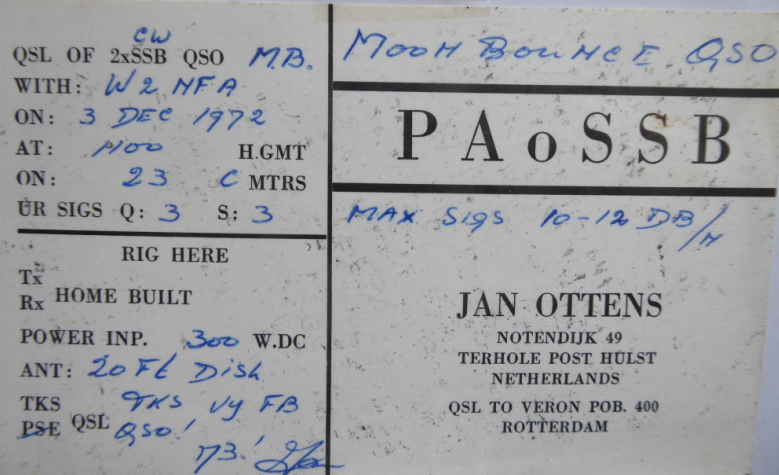 CW
QSL OF 2xSSB QSO M.B.
WITH: W2NFA
ON: 3 DEC 1972
AT: 1100 H.GMT
ON: 23 C MTRS
UR SIGS Q: 3 S: 3
RIG HERE
Tx
Rx HOME BUILT
POWER INP. 300 W.DC
ANT: 20 Ft Dish
TKS TKS vy FB
PSE QSL QSO!
73!
MOON BOUNCE QSO
PAoSSB
MAX SIGS 10-12 DB/N
JAN OTTENS
NOTENDIJK 49
TERHOLE POST HULST
NETHERLANDS
QSL TO VERON POB. 400
ROTTERDAM